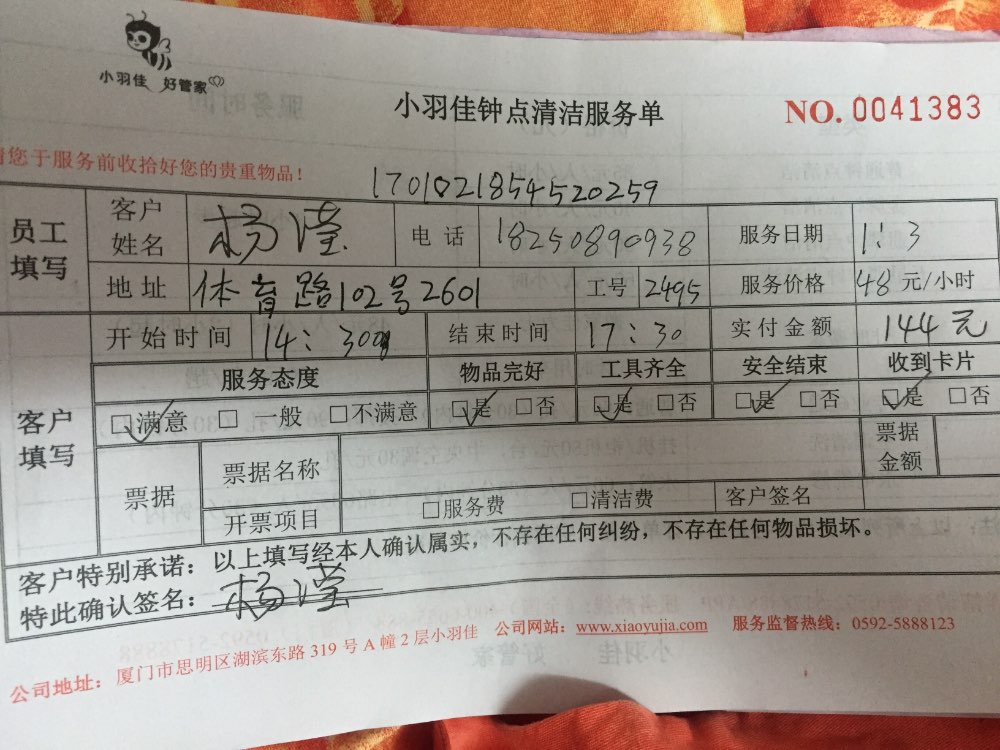 小羽佳 好管家
小羽佳钟点清洁服务单
NO. 0041383
请您于服务前收拾好您的贵重物品!
1701021854520259
员工填写 客户姓名 杨滢 电话 18250890938 服务日期 1:3
地址 体育路102号2601 工号 2495 服务价格 48元/小时
客户填写 开始时间 14:30 结束时间 17:30 实付金额 144元
服务态度 物品完好 工具齐全 安全结束 收到卡片
□满意 □一般 □不满意 □是 □否 □是 □否 □是 □否 □是 □否
票据 票据名称 票据金额
开票项目 □服务费 □清洁费 客户签名
客户特别承诺:以上填写经本人确认属实,不存在任何纠纷,不存在任何物品损坏。
特此确认签名:杨滢
公司地址:厦门市思明区湖滨东路319号A幢2层小羽佳 公司网站:www.xiaoyujia.com 服务监督热线:0592-5888123